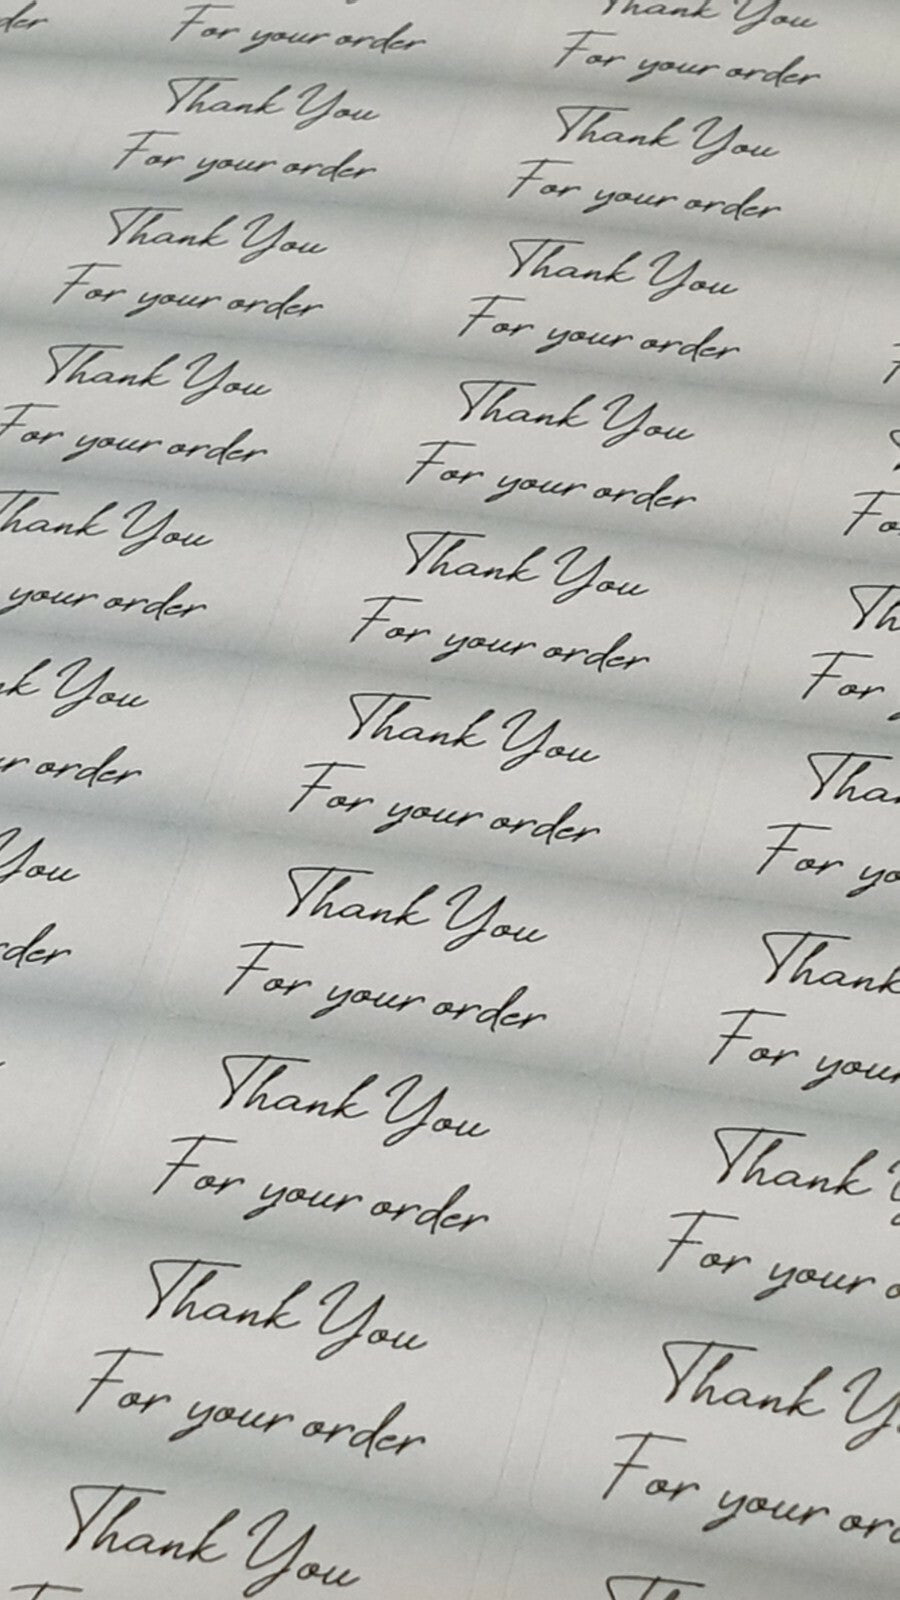 der
For your order
Thank You
For your order
Thank You
For your order
Thank You
For your order
Thank You
For your order
Thank You
For your order
Thank You
For your order
Thank You
For your order
Thank You
For your order
Thank You
your order
Thank You
For your order
Th
For
You
order
Thank You
For your order
Tha
For yo
You
der
Thank You
For your order
Thank
For your
Thank You
For your order
Thank
For your o
Thank You
For your order
Thank Y
For your ord
Thank You